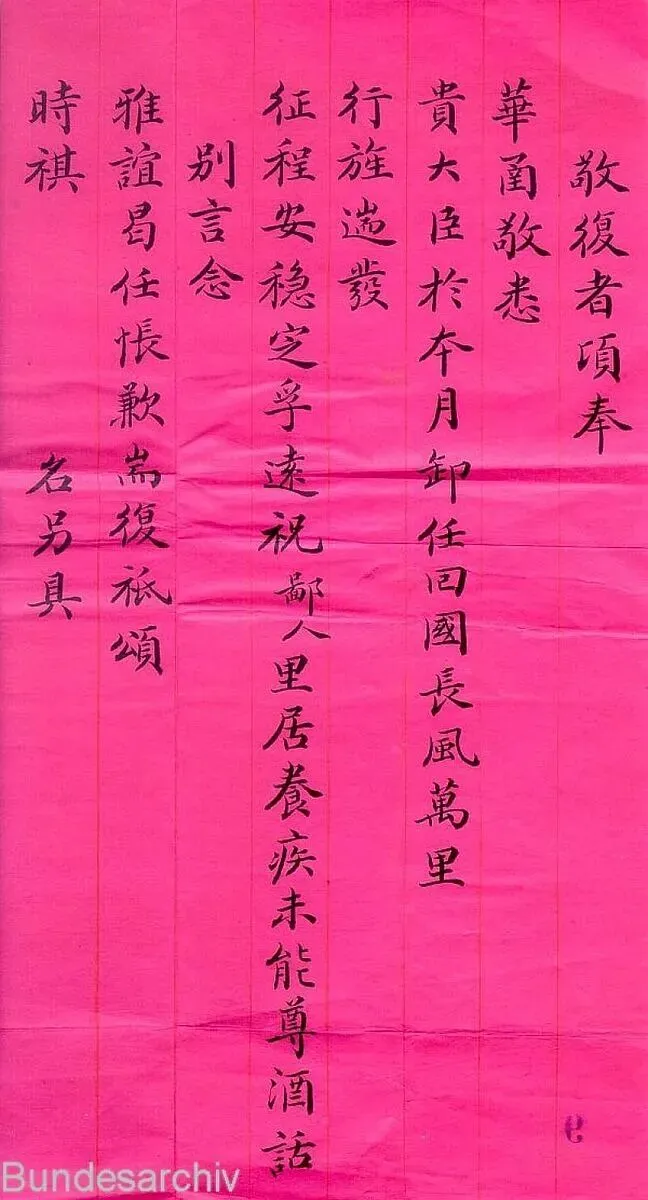 敬復者頃奉
華圅敬悉
貴大臣於本月卸任回國長風萬里
行旌遄發
征程安穩定孚遠祝鄙人里居養疾未能尊酒話
別言念
雅誼曷任悵歉耑復祗頌
時祺 名另具
9
Bundesarchiv